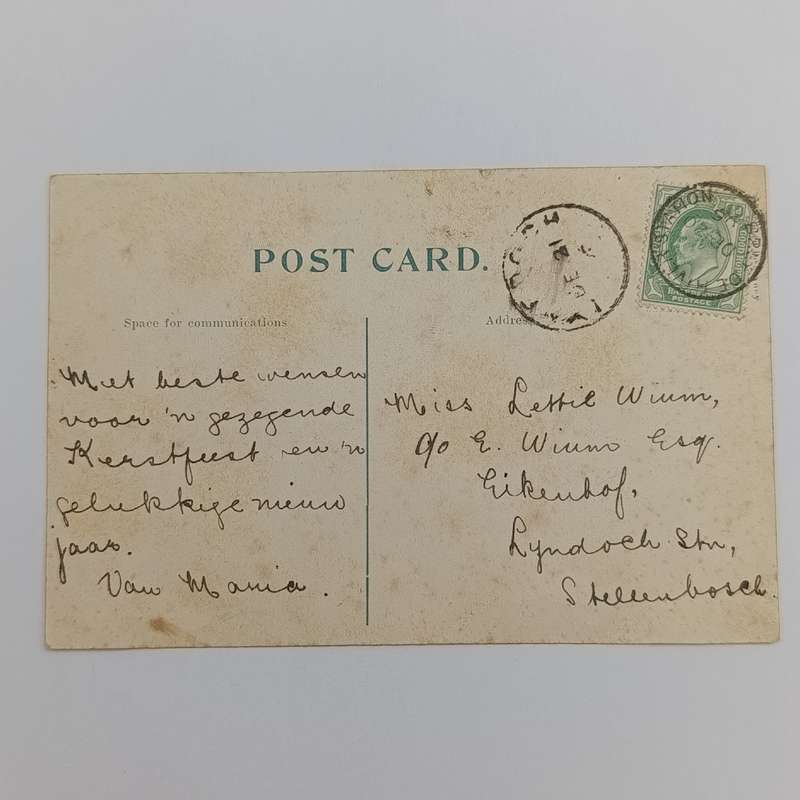 POST CARD.
Space for communications
Address
Met beste wensen
voor 'n gezegende
Kerstfeest en 'n
gelukkige nieuw
jaar.
Van Maria.
Miss Lettie Wium,
c/o E. Wium Esq.
Eikenhof,
Lyndoch Stn,
Stellenbosch.
DE 21
POSTAGE